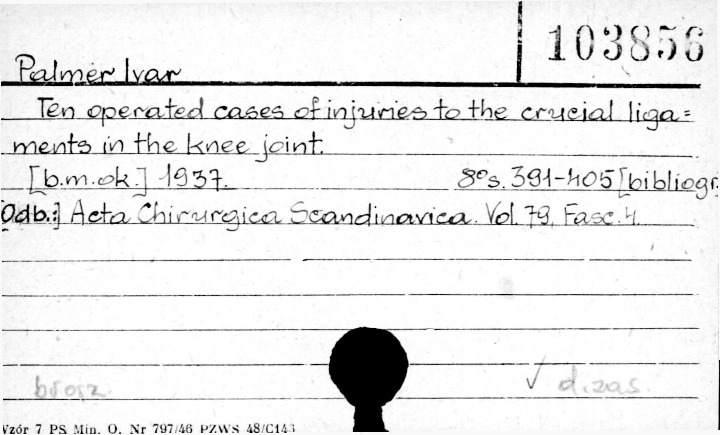 103856
Palmer Ivar
Ten operated cases of injuries to the crucial liga=
ments in the knee joint.
[b.m.ok.] 1937. 8°s. 391-405 [bibliogr.
Odb.:] Acta Chirurgica Scandinavica. Vol. 79, Fasc. 4.
brosz. √ d. zas.
Wzór 7 PS Min. O. Nr 797/46 PZWS 48/C143